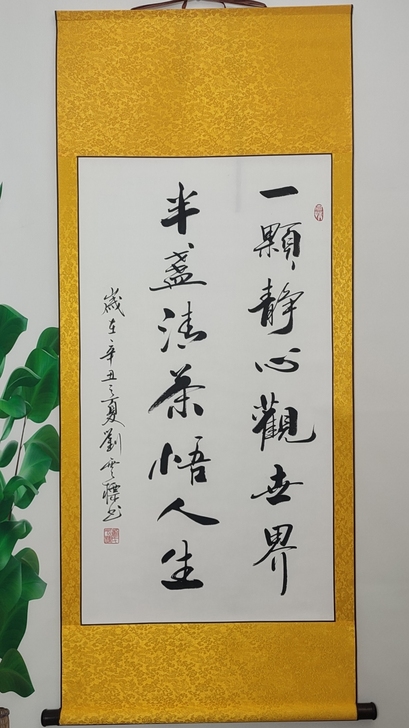 一顆靜心觀世界
半盞清茶悟人生
歲在辛丑之夏劉雲標书